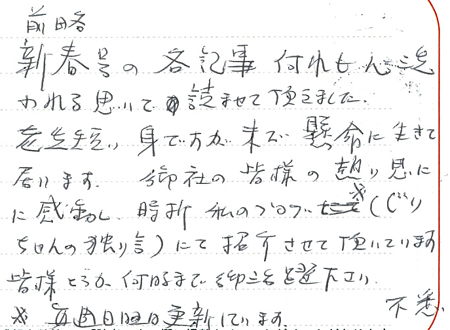 前略
新春号の各記事 何れも心洗
われる思いで 読ませて頂きました.
老先短い身ですが 未だ懸命に生きて
居ります. 御社の皆様の熱い思いに
に感動し 時折 私のブログ ※(じい
ちゃんの独り言)にて紹介させて頂いています
皆様どうか何時まで御立を
※ 毎週日曜日更新しています. 不悉